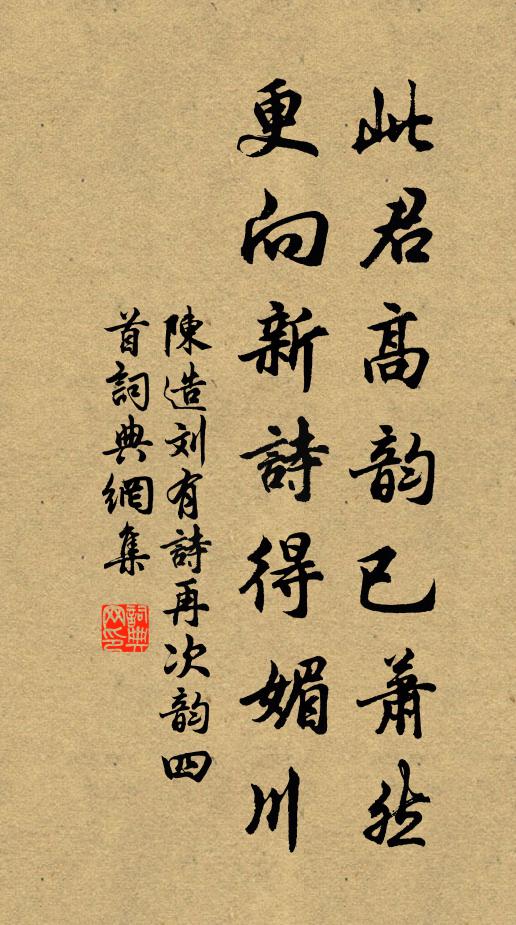 此君高韵已蕭然
更向新詩得媚川
陳造刘有詩再次韵四
首詞典網集
詞典网印